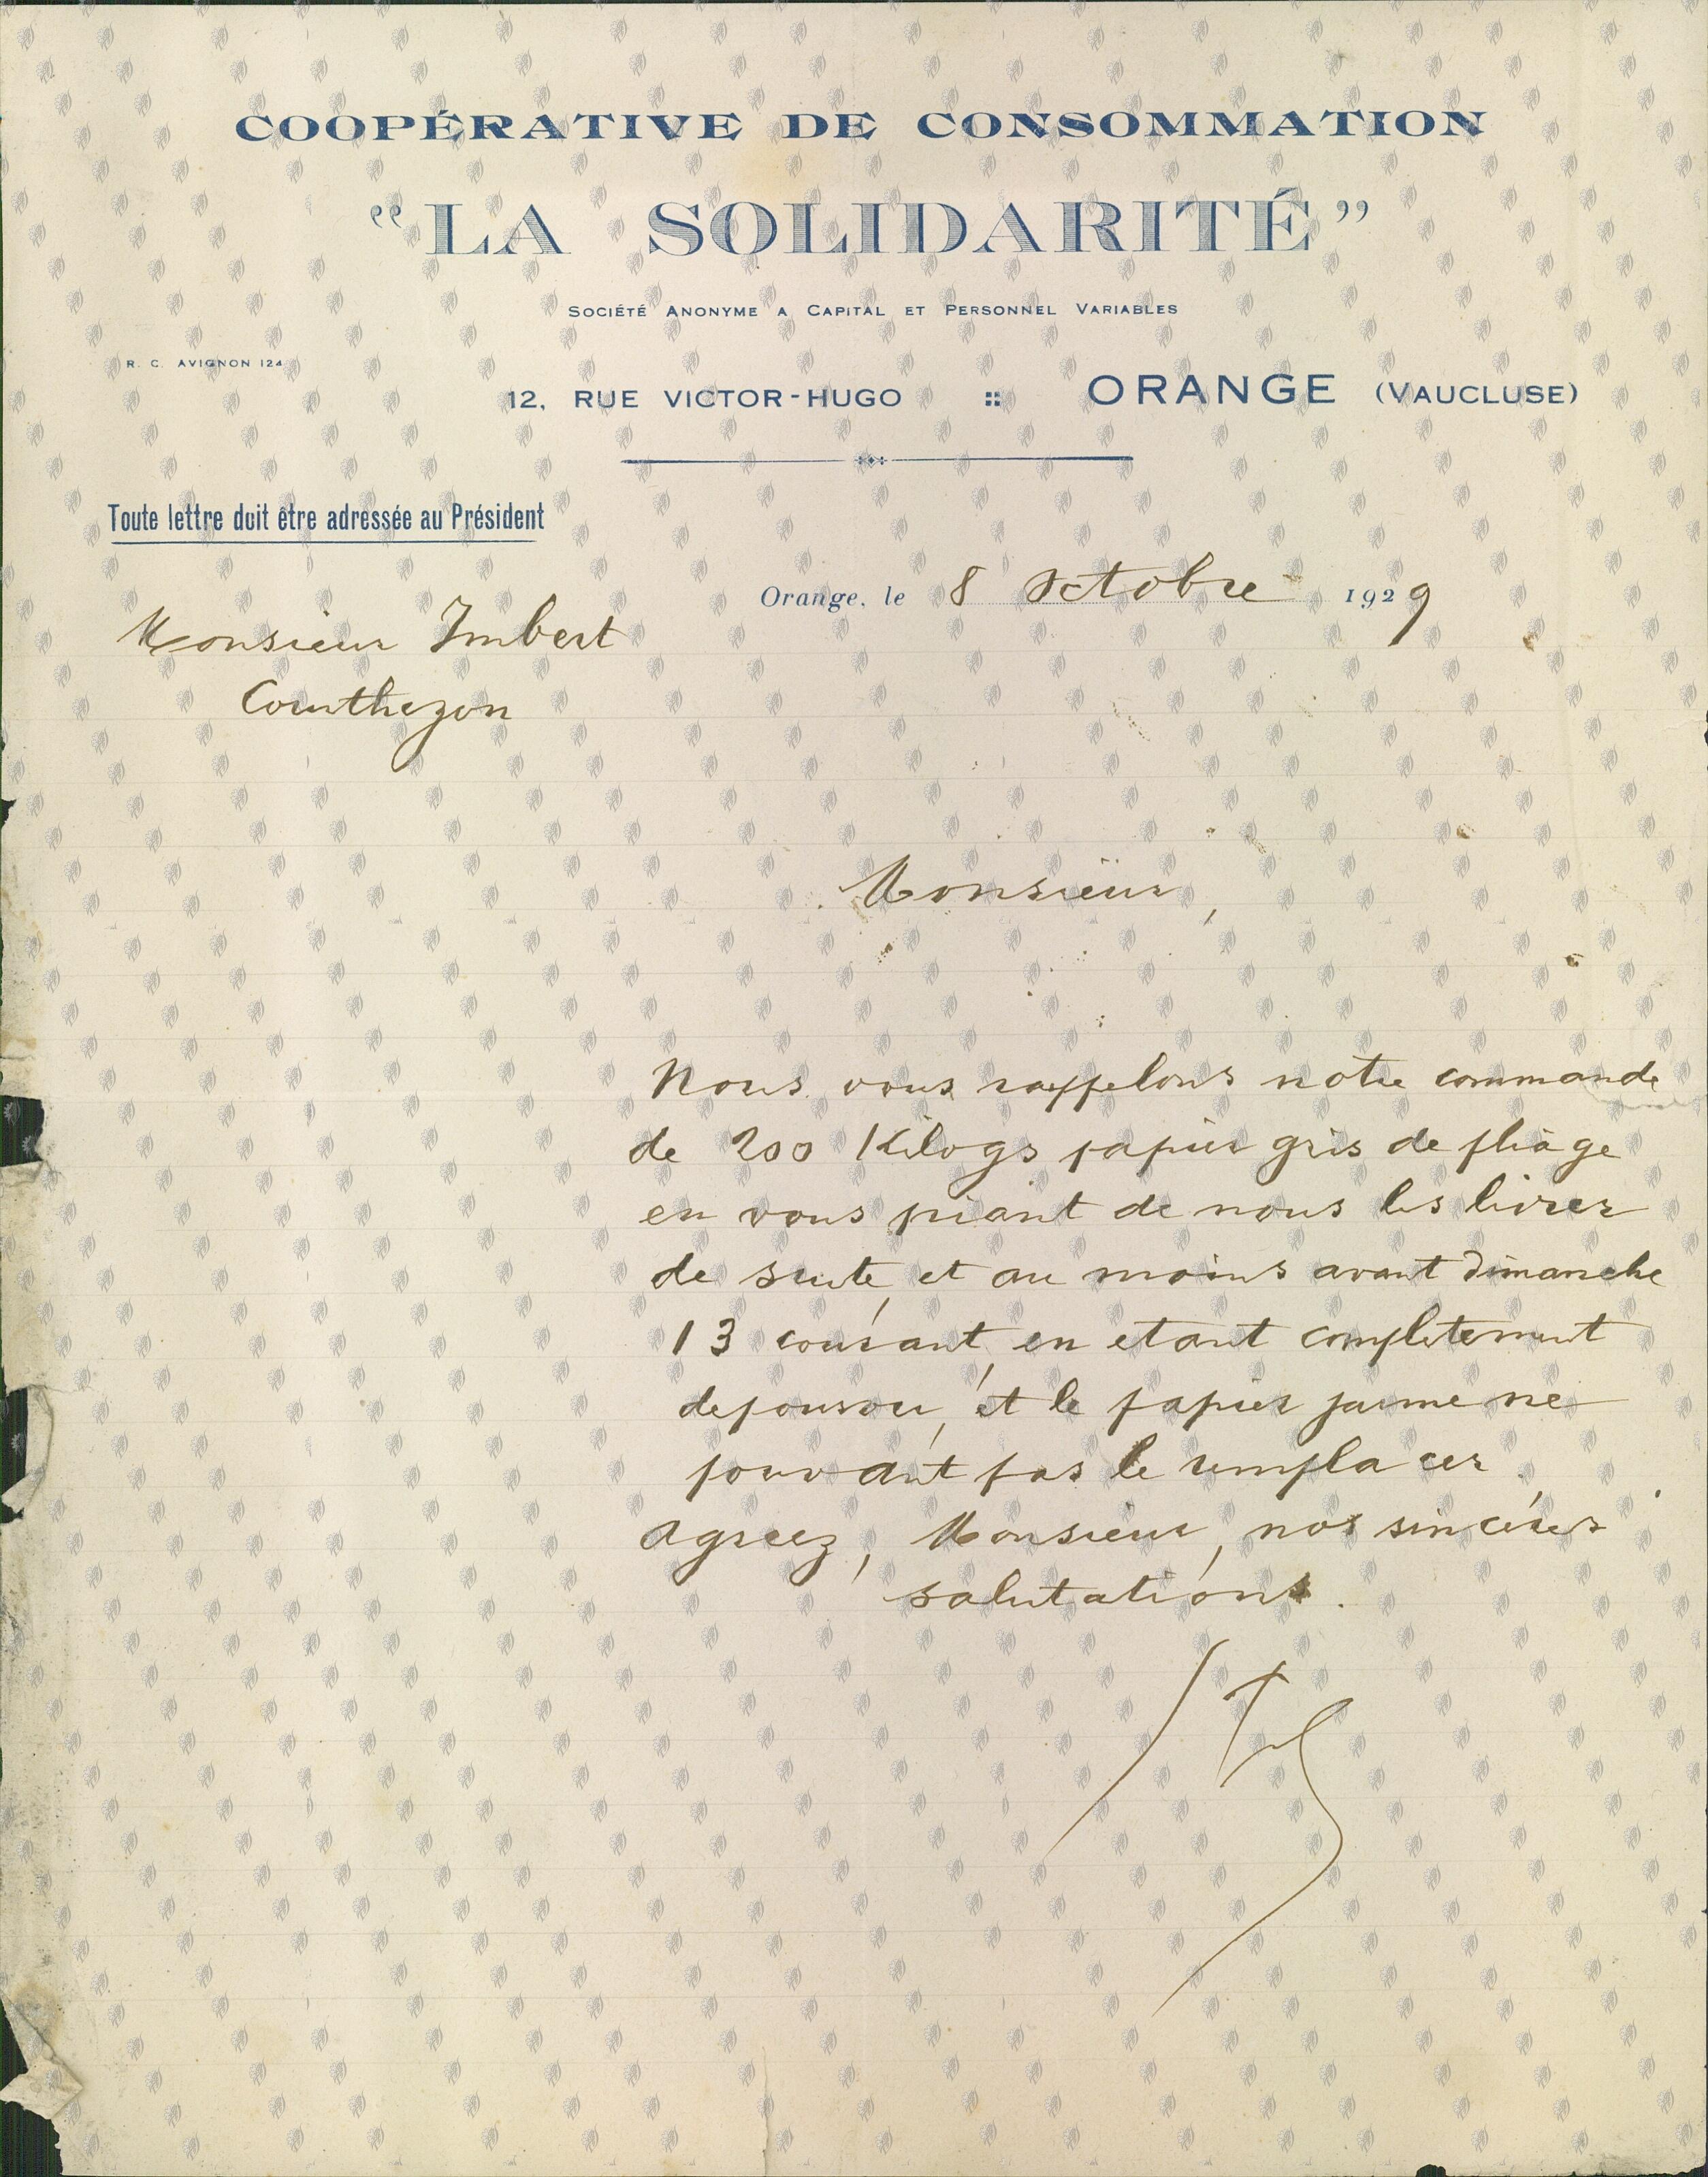 COOPÉRATIVE DE CONSOMMATION
“LA SOLIDARITÉ”
SOCIÉTÉ ANONYME A CAPITAL ET PERSONNEL VARIABLES
R. C. AVIGNON 124
12, RUE VICTOR-HUGO :: ORANGE (VAUCLUSE)
Toute lettre doit être adressée au Président
Orange, le 8 Octobre 1929
Monsieur Imbert
Courthezon
Monsieur,
Nous vous rappelons notre commande
de 200 Kilogs papier gris de pliage
en vous priant de nous les livrer
de suite, et au moins avant dimanche
13 courant, en etant completement
depourvu, et le papier jaune ne
pouvant pas le remplacer.
Agreez, Monsieur, nos sincères
salutations.